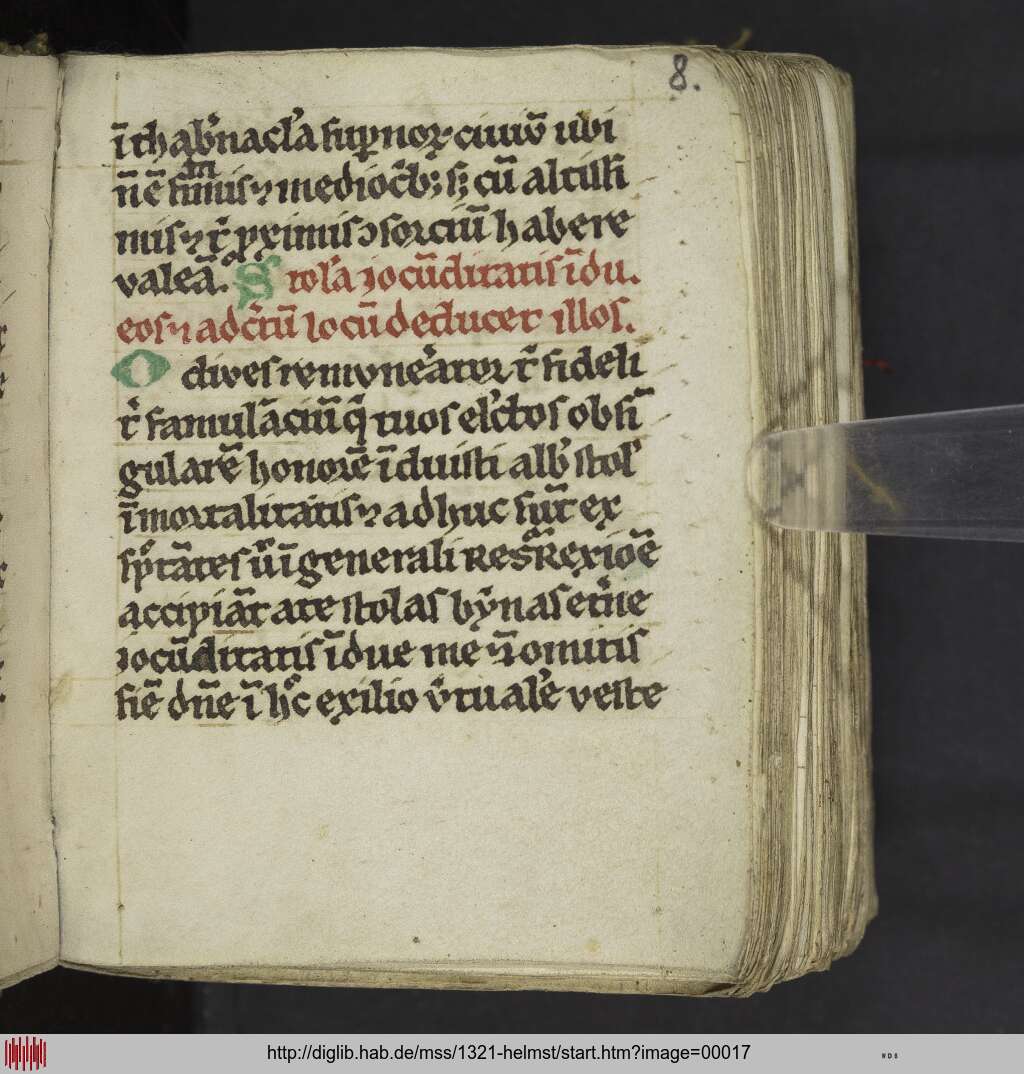 8.
ī thab̓nac̄la suꝑnoꝝ ciuiū ubi
n̄ ē sūmis ⁊ medioc̓bꝫ sꝫ cū altissi
mis ⁊ t̓ ꝓximis ꝯsorciū habere
valeā. S tola iocūditatis īdu.
eos ⁊ ad c̓tū locū deducet illos.
O dives remvne̓ator t̓ fideli
t̓ famulāciū q̄ tuos elc̓tos ob si
gularē honorē īduisti alb̓ stol̓
īmortalitatis ⁊ adhuc sūt ex
sp̓tātes ī generali Res̓Rexioē
accipiāt a te stolas bȳnas et̓ne
iocūditatis īdue me n̄ omutis
siē dn̄e ī hͦc exilio v̓tuale veste
http://diglib.hab.de/mss/1321-helmst/start.htm?image=00017